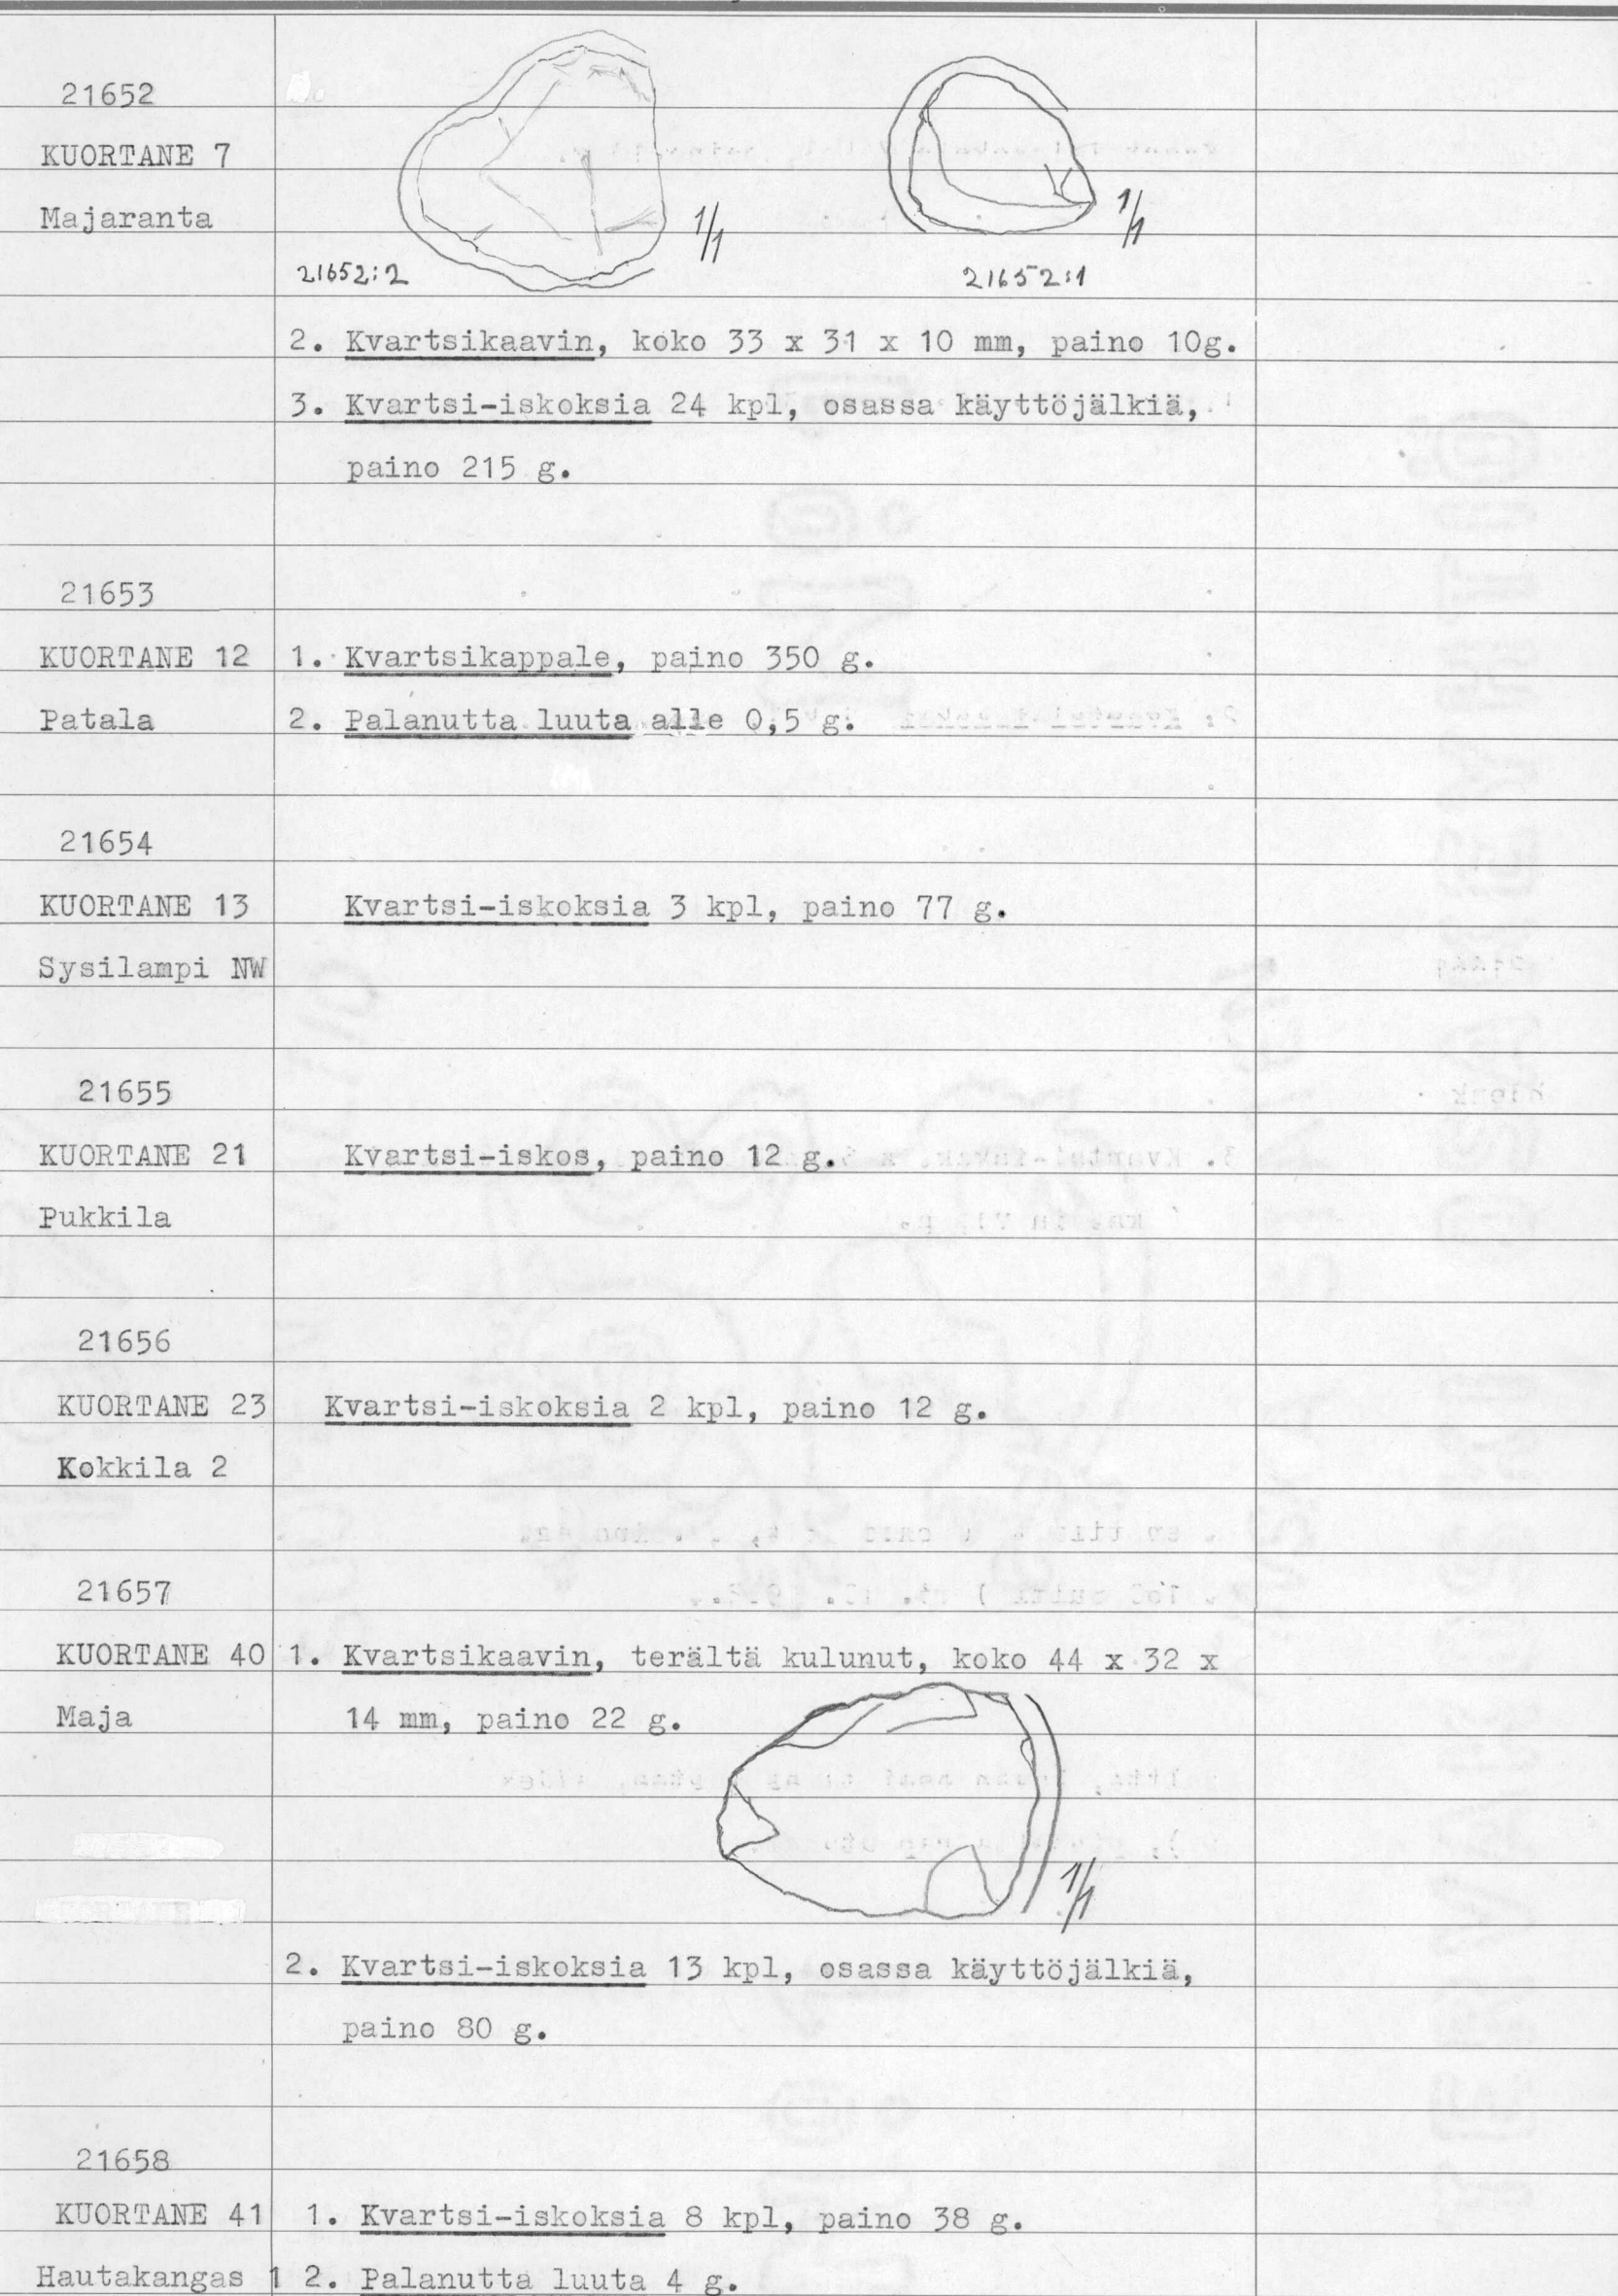 21652
KUORTANE 7
Majaranta
1/1
1/1
21652:2
21652:1
2. Kvartsikaavin, koko 33 x 31 x 10 mm, paino 10g.
3. Kvartsi-iskoksia 24 kpl, osassa käyttöjälkiä,
paino 215 g.
21653
KUORTANE 12 1. Kvartsikappale, paino 350 g.
Patala 2. Palanutta luuta alle 0,5 g.
21654
KUORTANE 13 Kvartsi-iskoksia 3 kpl, paino 77 g.
Sysilampi NW
21655
KUORTANE 21 Kvartsi-iskos, paino 12 g.
Pukkila
21656
KUORTANE 23 Kvartsi-iskoksia 2 kpl, paino 12 g.
Kokkila 2
21657
KUORTANE 40 1. Kvartsikaavin, terältä kulunut, koko 44 x 32 x
Maja 14 mm, paino 22 g.
1/1
2. Kvartsi-iskoksia 13 kpl, osassa käyttöjälkiä,
paino 80 g.
21658
KUORTANE 41 1. Kvartsi-iskoksia 8 kpl, paino 38 g.
Hautakangas 1 2. Palanutta luuta 4 g.